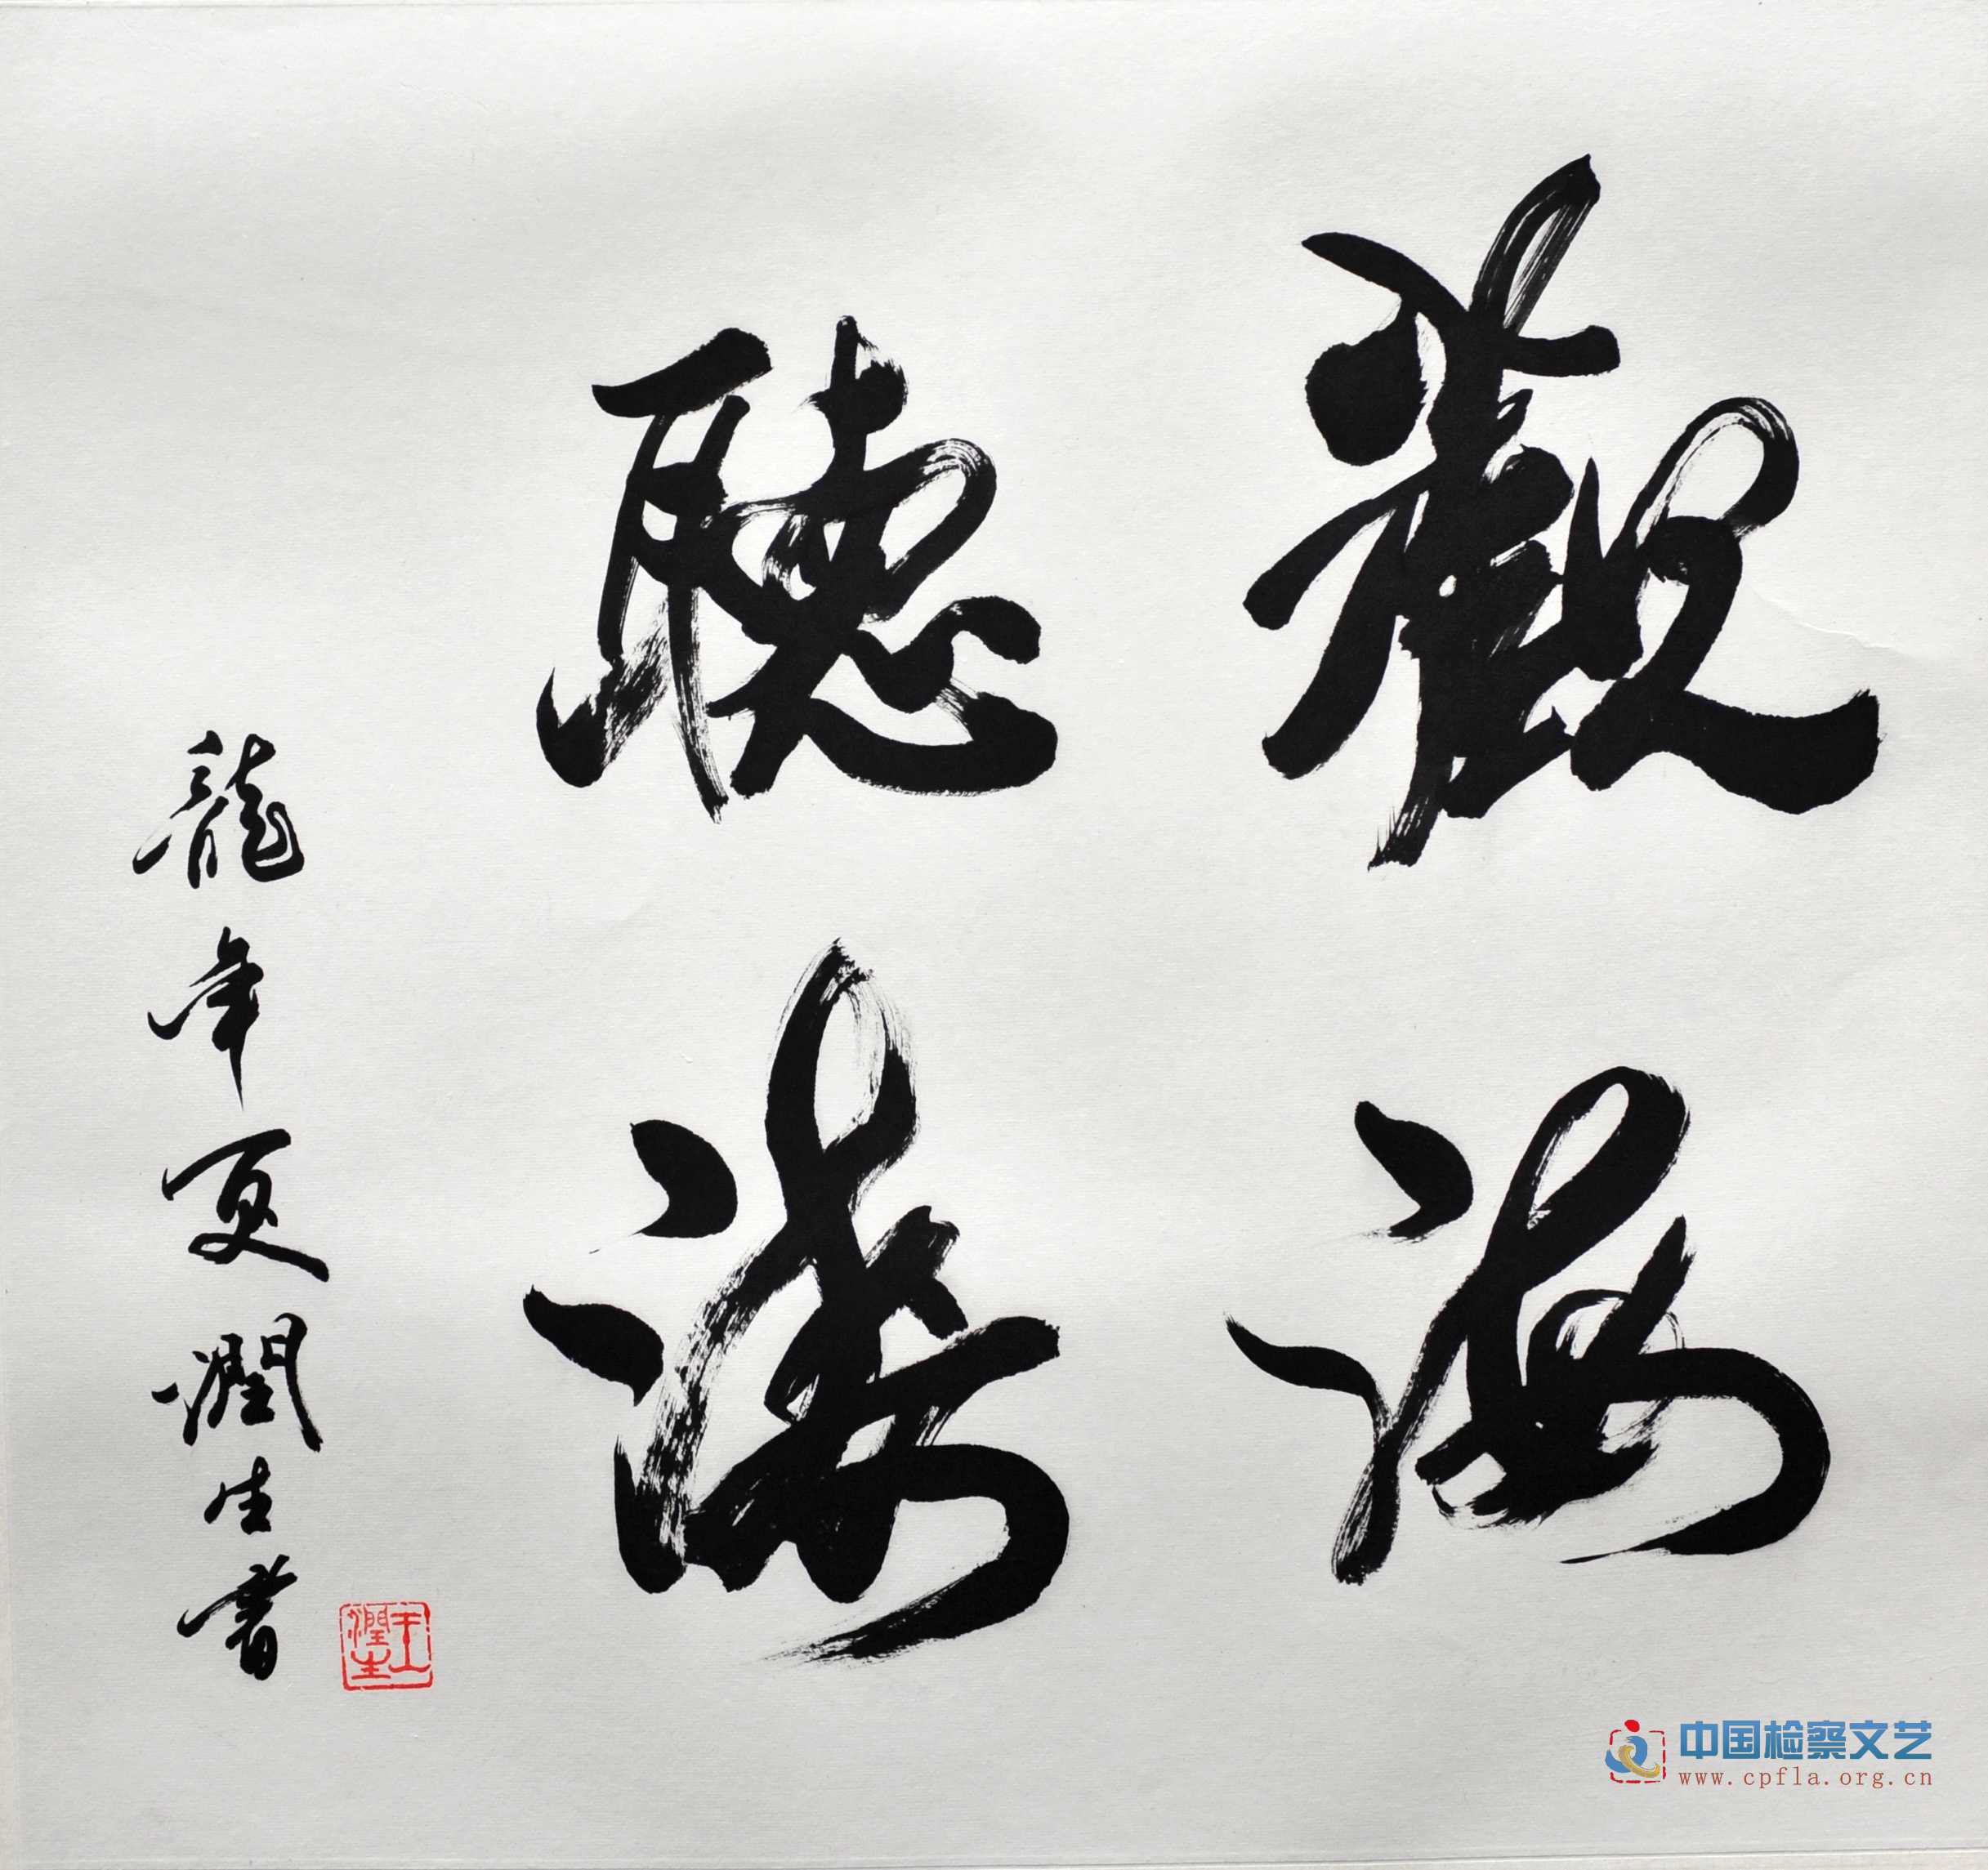 觀海
聽濤
龍年夏潤生書
王潤生
中国检察文艺
www.cpfla.org.cn